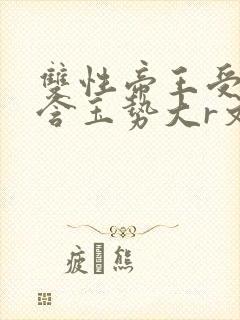 雙性帝王受
含玉勢大r文
疲 熊